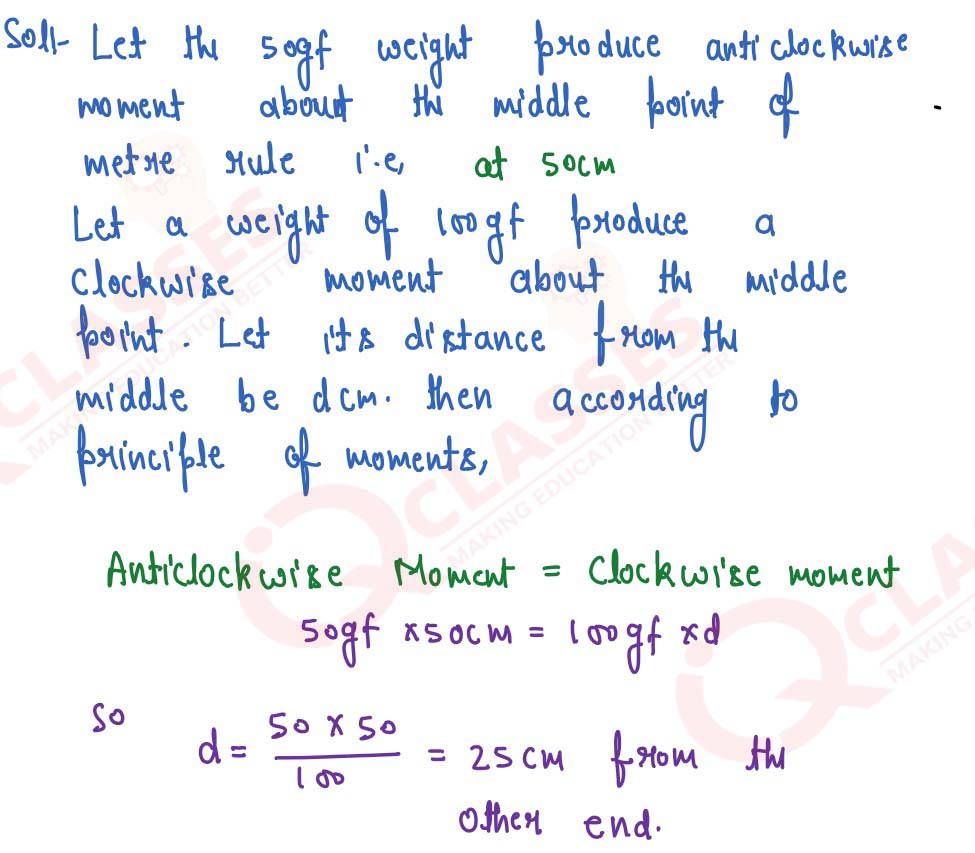 Soln- Let the 50gf weight produce anticlockwise
moment about the middle point of
metre rule i.e, at 50cm
Let a weight of 100gf produce a
clockwise moment about the middle
point. Let its distance from the
middle be d cm. then according to
principle of moments,
Anticlockwise Moment = Clockwise moment
50gf x 50cm = 100gf x d
So
d = 50 x 50 / 100 = 25cm from the
other end.
CLASSES
MAKING EDUCATION BETTER
iQ CLASSES
MAKING EDUCATION BETTER
iQ CLA
MAKING